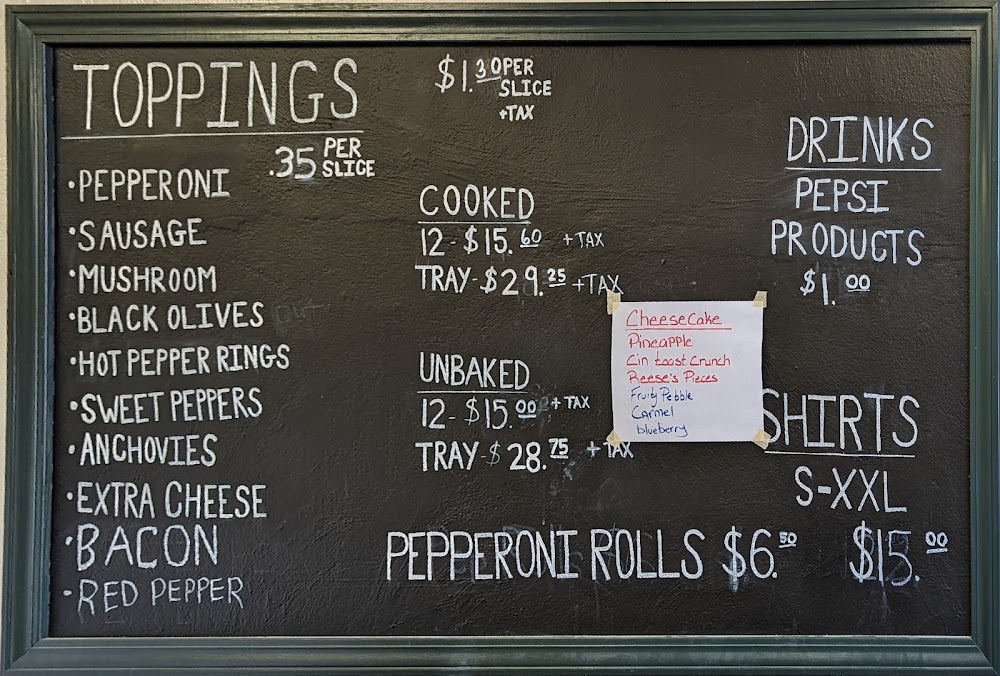 TOPPINGS
.35 PER
SLICE
•PEPPERONI
•SAUSAGE
•MUSHROOM
•BLACK OLIVES
•HOT PEPPER RINGS
•SWEET PEPPERS
•ANCHOVIES
•EXTRA CHEESE
•BACON
•RED PEPPER
$1.30 PER
SLICE
+TAX
COOKED
12-$15.60 +TAX
TRAY-$29.25 +TAX
UNBAKED
12-$15.00 +TAX
TRAY-$28.75 +TAX
PEPPERONI ROLLS $6.50
CheeseCake
Pineapple
Cin toast Crunch
Reese's Pieces
Fruity Pebble
Carmel
blueberry
DRINKS
PEPSI
PRODUCTS
$1.00
SHIRTS
S-XXL
$15.00